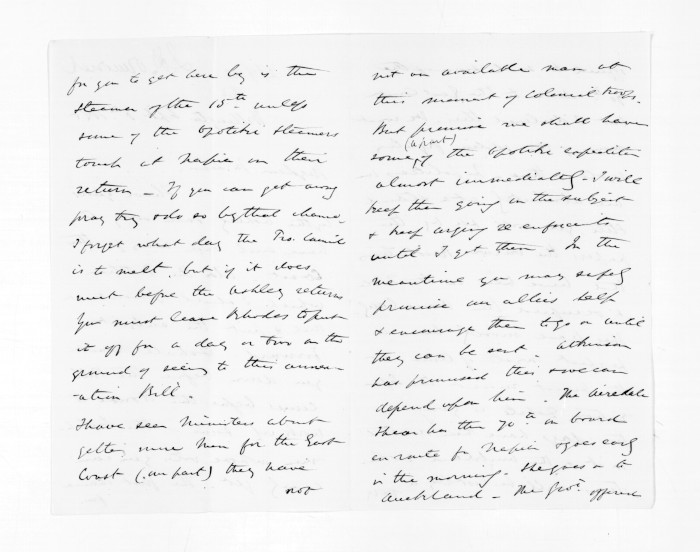 for you to get here by is the
Steamer of the 15th unless
some of the Opotiki Steamers
touch at Napier on their
return — If you can get away
pray try & do so by that chance.
I forget what day the Pro. Council
is to meet, but if it does
meet before the Ashley returns
you must leave Rhodes to put
it off for a day or two on the
ground of seeing to this
-ation Bill.
I have seen Ministers about
getting more men for the East
Coast (apart) they have
not
not an available man at
this moment of Colonial troops.
But promise we shall have
(apart)
some, of the Opotiki expedition
almost immediately. I will
keep them going on the subject
& keep urging reenforcents
until I get them. In the
meantime you may safely
promise our allies help
& encourage them to go on until
they can be sent. Atkinson
has promised this & we can
depend upon him. The Airedale
I hear has the 70th on board
en route for Napier & goes early
in the morning. She goes on to
Auckland — The Govt. offered